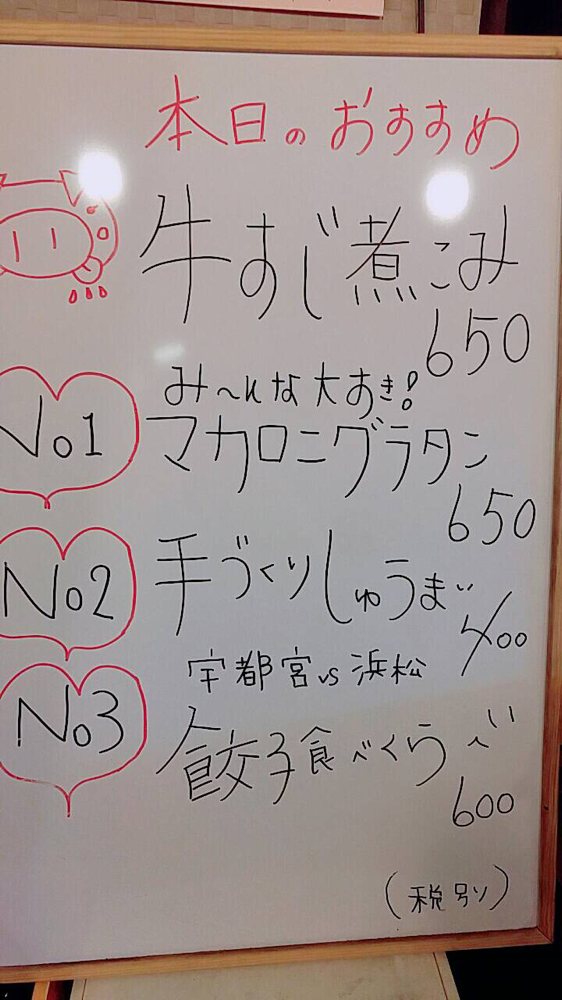 本日のおすすめ
牛すじ煮こみ
650
み〜んな大すき!
No1
マカロニグラタン
650
No2
手づくりしゅうまい
400
宇都宮vs浜松
No3
餃子食べくらべ
600
(税別)